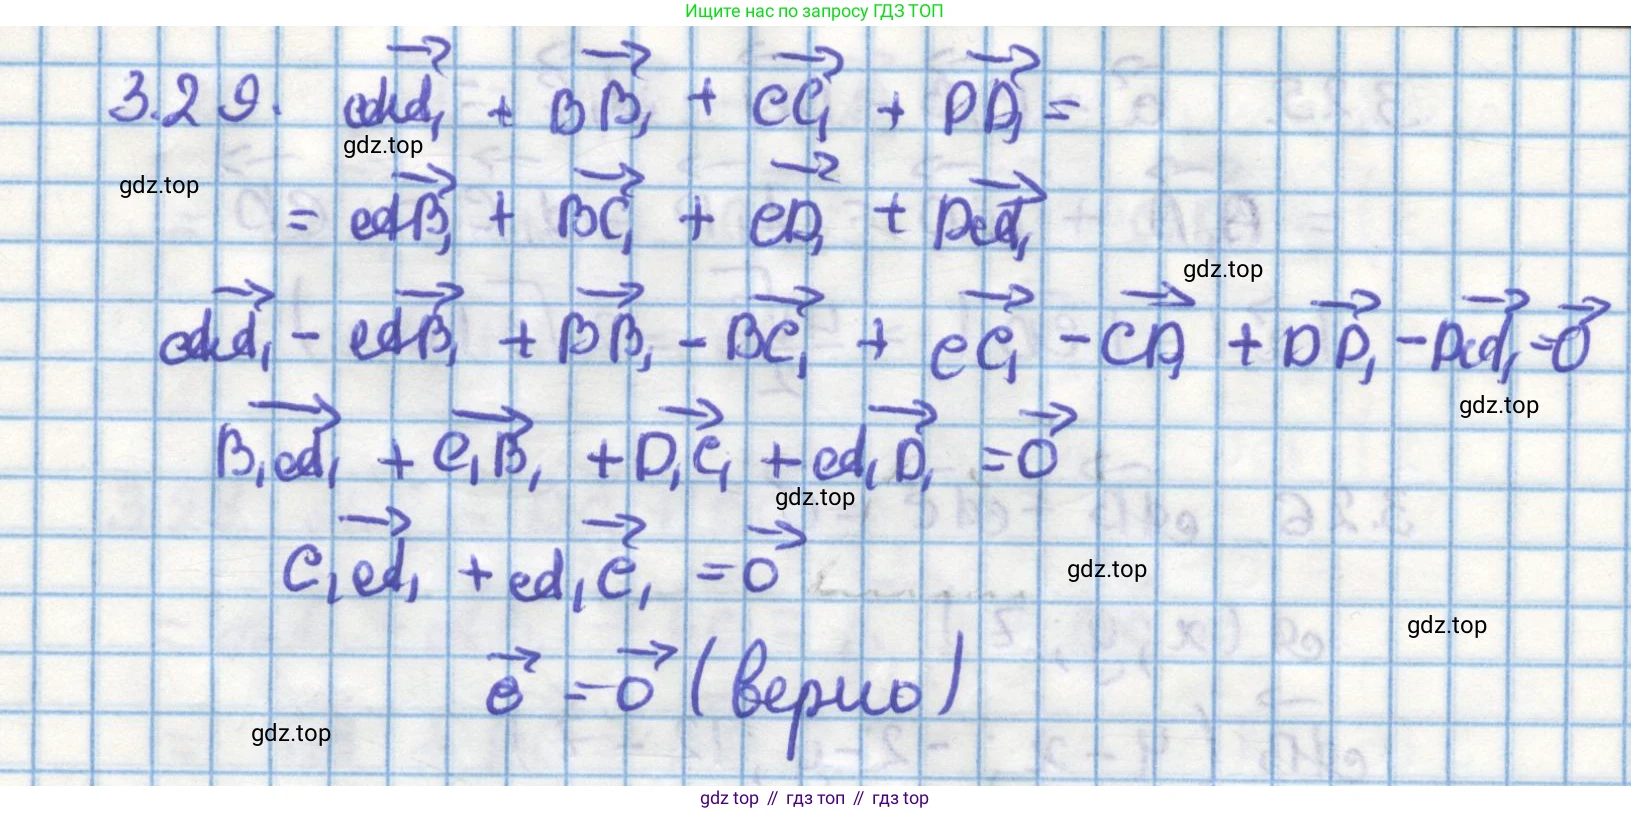 Ищите нас по запросу ГДЗ ТОП
3.29. AA₁ + BB₁ + CC₁ + DD₁ =
gdz.top
gdz.top
= AB₁ + BC₁ + CD₁ + DA₁
gdz.top
AA₁ - AB₁ + BB₁ - BC₁ + CC₁ - CD₁ + DD₁ - DA₁ = 0
gdz.top
B₁A₁ + C₁B₁ + D₁C₁ + A₁D₁ = 0
gdz.top
C₁A₁ + A₁C₁ = 0
gdz.top
gdz.top
0 = 0 (верно)
gdz.top
gdz top // гдз топ // гдз top